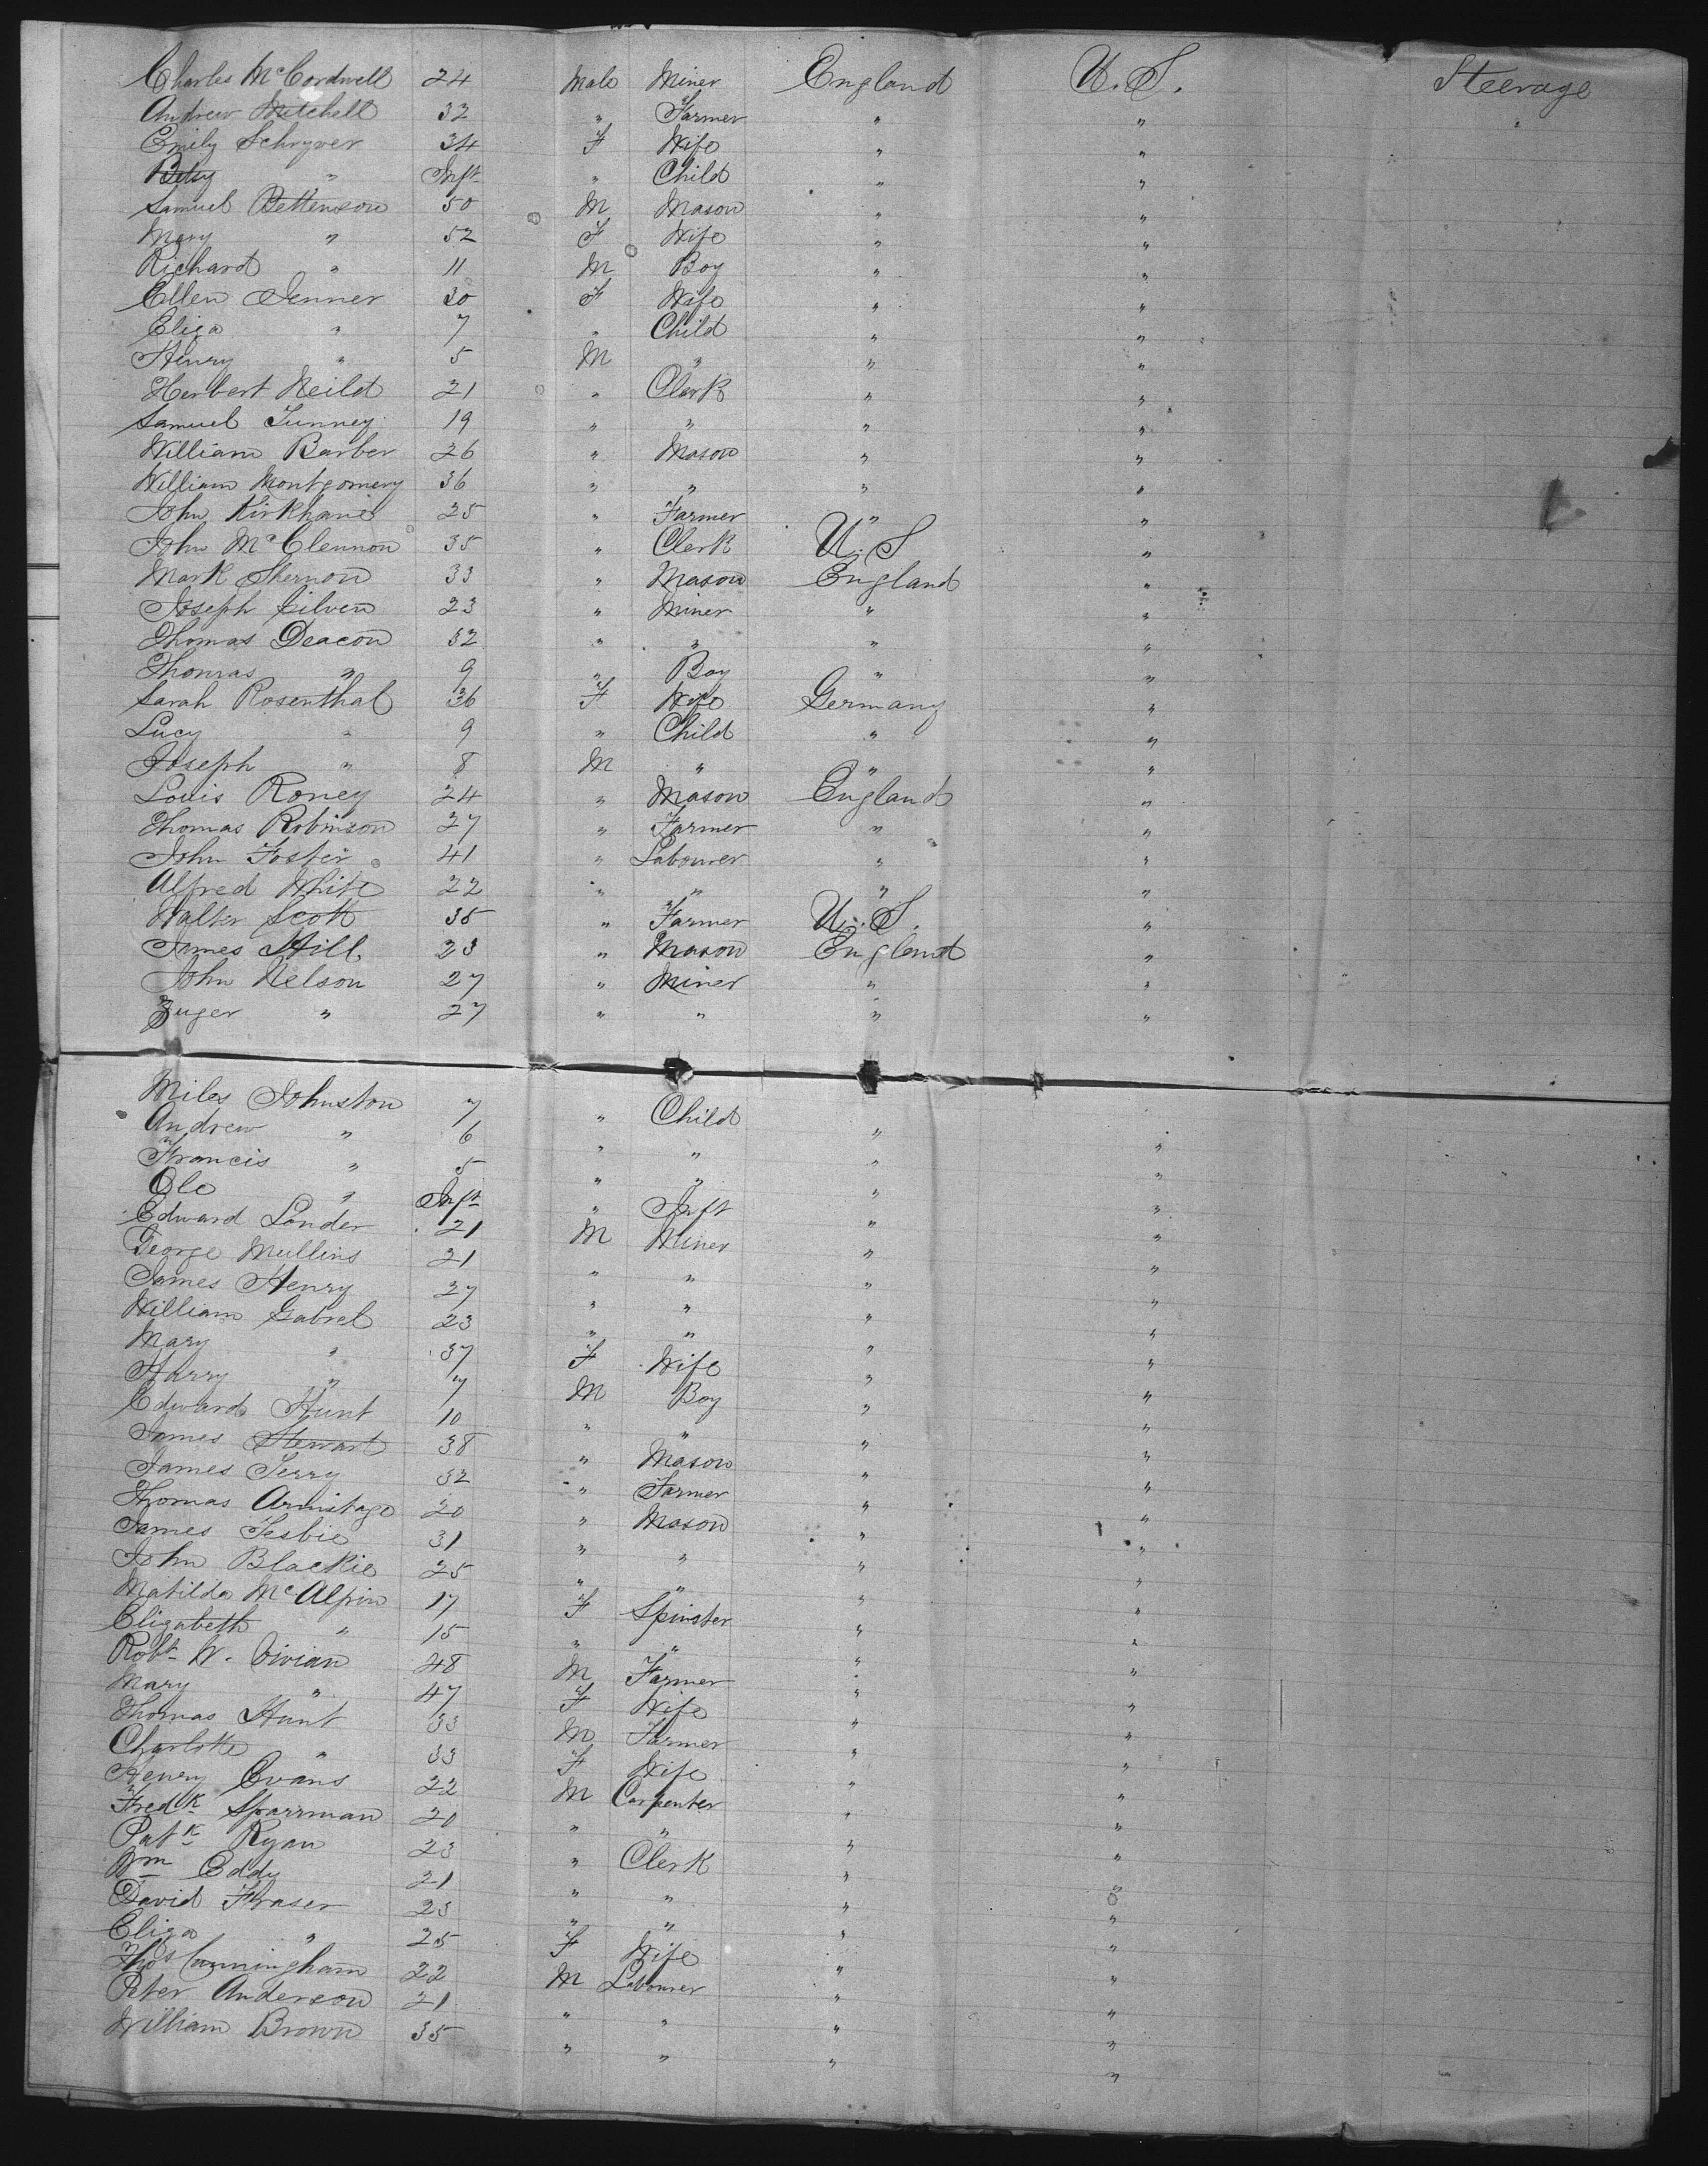 Charles McCordwell 24 Male Miner England U.S. Steerage
Andrew Mitchell 32 " Farmer " "
Emily Schryver 34 F Wife " "
Betsy " Inft " Child " "
Samuel Bettenson 50 M Mason " "
Mary " 52 F Wife " "
Richard " 11 M Boy " "
Ellen Jenner 30 F Wife " "
Eliza " 7 " Child " "
Henry " 5 M " " "
Herbert Neild 21 " Clerk " "
Samuel Tunney 19 " " " "
William Barber 26 " Mason " "
William Montgomery 36 " " " "
John Kirkhame 25 " Farmer " "
John McClennon 35 " Clerk U.S "
Mark Shernon 33 " Mason England "
Joseph Gilven 23 " Miner " "
Thomas Deacon 32 " " " "
Thomas " 9 " Boy " "
Sarah Rosenthal 36 F Wife Germany "
Lucy " 9 " Child " "
Joseph " 8 M " " "
Louis Roney 24 " Mason England "
Thomas Robinson 27 " Farmer " "
John Foster 41 " Labourer " "
Alfred White 22 " " " "
Walter Scott 35 " Farmer U.S. "
James Hill 23 " Mason England "
John Nelson 27 " Miner " "
Zuger " 27 " " " "
Miles Johnston 7 " Child " "
Andrew " 6 " " " "
Francis " 5 " " " "
Ole " Inft " Inft " "
Edward Lander 21 M Miner " "
George Mullins 21 " " " "
James Henry 27 " " " "
William Gabrel 23 " " " "
Mary " 37 F Wife " "
Harry " 7 M Boy " "
Edward Hunt 10 " " " "
James Stewart 38 " Mason " "
James Terry 32 " Farmer " "
Thomas Armitage 20 " Mason " "
James Lesbie 31 " " " "
John Blackie 25 " " " "
Matilda McAlpin 17 F Spinster " "
Elizabeth " 15 " " " "
Robt W. Vivian 48 M Farmer " "
Mary " 47 F Wife " "
Thomas Hunt 33 M Farmer " "
Charlotte " 33 F Wife " "
Henery Evans 22 M Carpenter " "
Fredk Sparrman 20 " " " "
Patk Ryan 23 " Clerk " "
Wm Eddy 21 " " " "
David Fraser 23 " " " "
Eliza " 25 F Wife " "
Thos Cunningham 22 M Labourer " "
Peter Anderson 21 " " " "
William Brown 35 " " " "